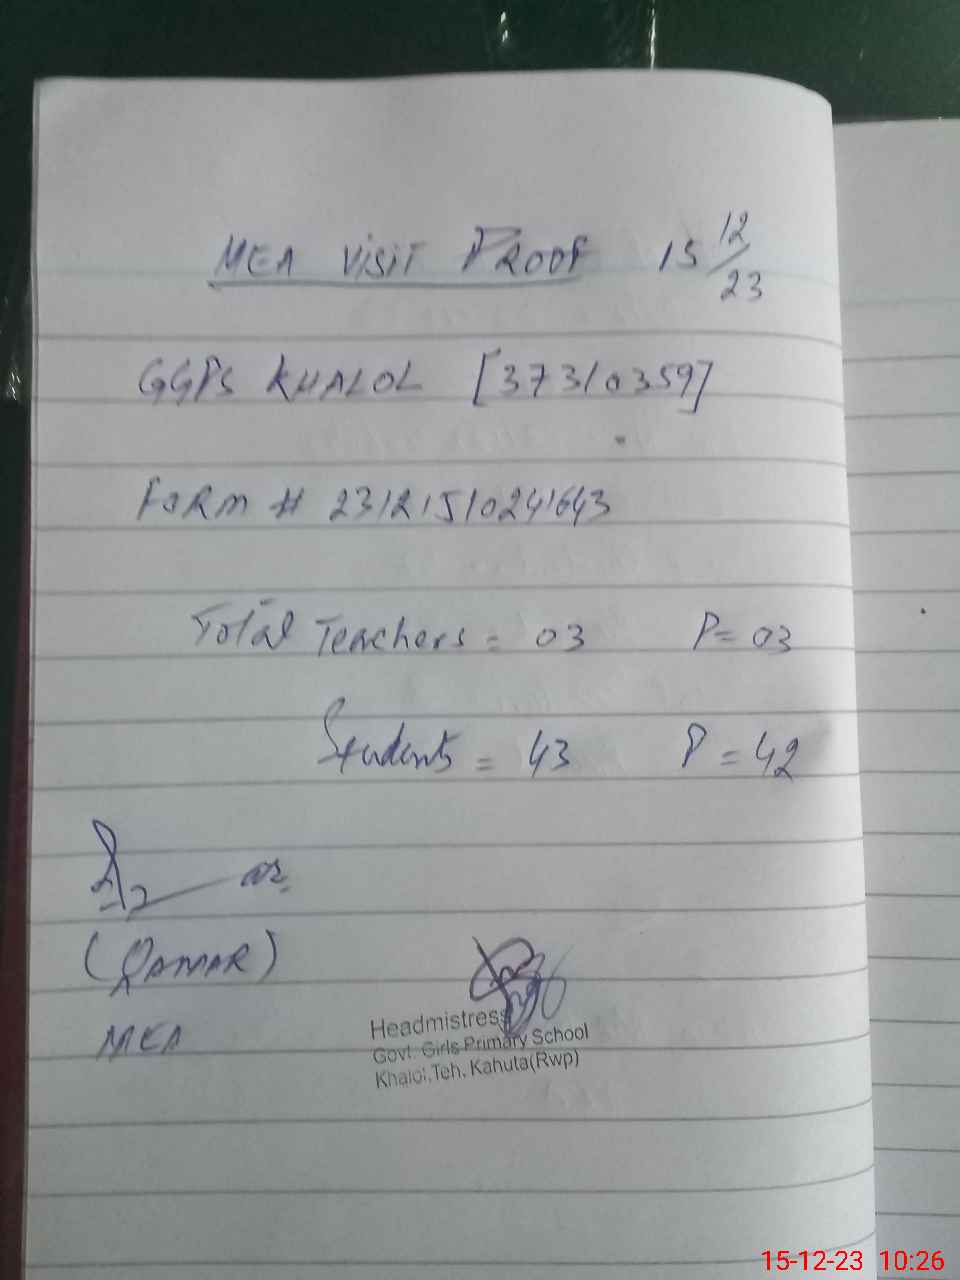 MEA VISIT PROOF 15/12/23
GGPS KHALOL [37310359]
FORM # 23121510241643
Total Teachers = 03 P= 03
Students = 43 P = 42
(QAMAR)
MEA
Headmistress
Govt. Girls Primary School
Khalol,Teh. Kahuta(Rwp)
15-12-23 10:26